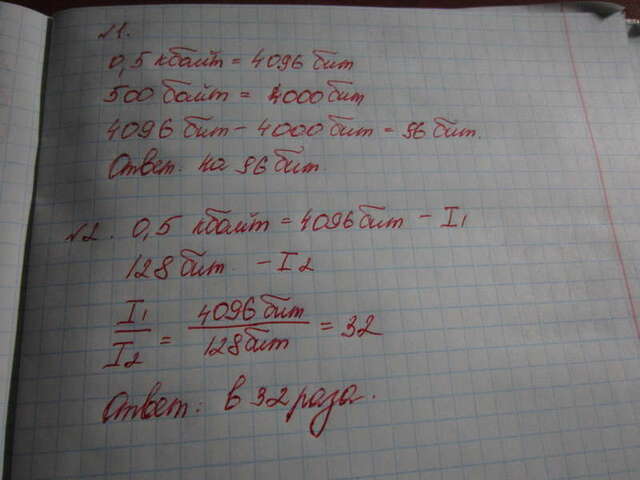 №1.
0,5 кбайт = 4096 бит
500 байт = 4000 бит
4096 бит - 4000 бит = 96 бит.
Ответ. на 96 бит.
№2. 0,5 кбайт = 4096 бит - I1
128 бит. - I2
I1/I2 = 4096 бит/128 бит = 32
Ответ: в 32 раза.